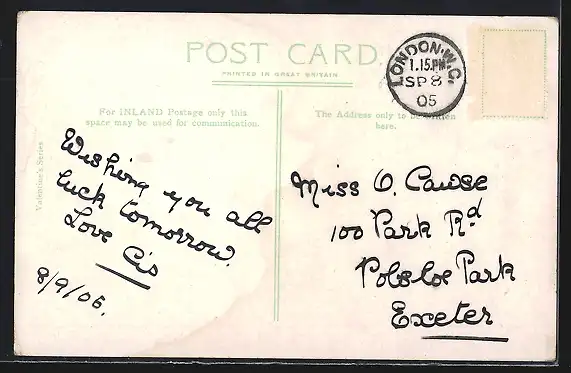 POST CARD.
PRINTED IN GREAT BRITAIN
For INLAND Postage only this
space may be used for communication.
The Address only to be written
here.
LONDON.W.C.
1.15.PM
SP 8
05
Valentine's Series
Wishing you all
luck tomorrow.
Love Cis
8/9/05.
Miss O. Cawse
100 Park Rd
Polsloe Park
Exeter